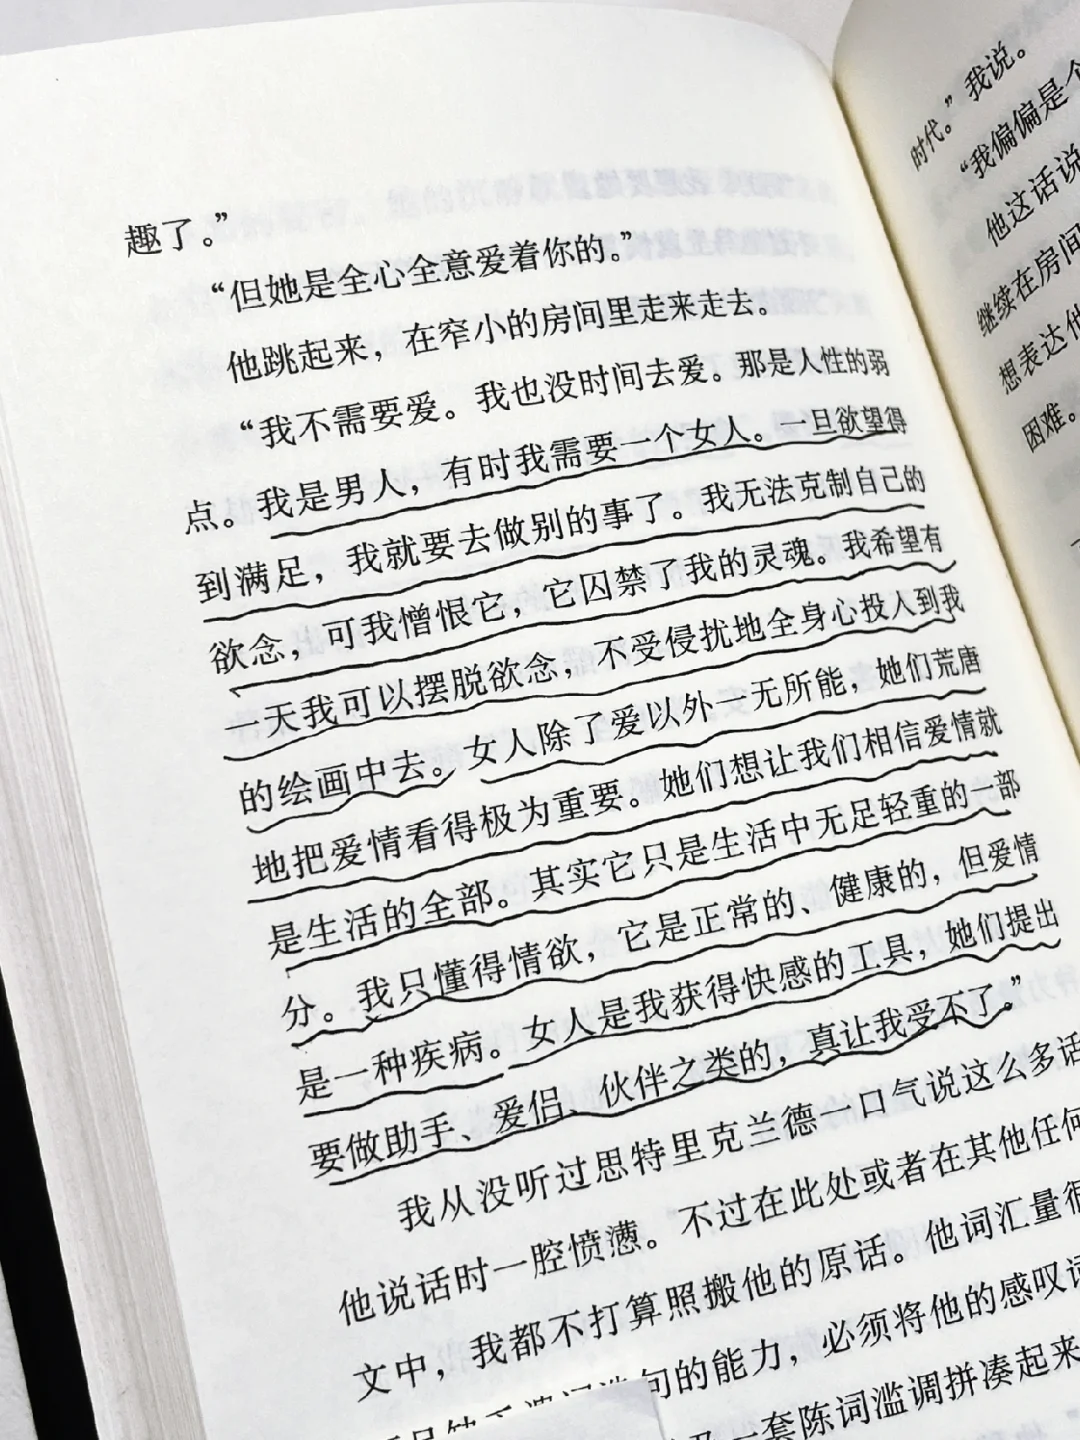 趣了。”
“但她是全心全意爱着你的。”
他跳起来，在窄小的房间里走来走去。
“我不需要爱。我也没时间去爱。那是人性的弱
点。我是男人，有时我需要一个女人。一旦欲望得
到满足，我就要去做别的事了。我无法克制自己的
欲念，可我憎恨它，它囚禁了我的灵魂。我希望有
一天我可以摆脱欲念，不受侵扰地全身心投入到我
的绘画中去。女人除了爱以外一无所能，她们荒唐
地把爱情看得极为重要。她们想让我们相信爱情就
是生活的全部。其实它只是生活中无足轻重的一部
分。我只懂得情欲，它是正常的、健康的，但爱情
是一种疾病。女人是我获得快感的工具，她们提出
要做助手、爱侣、伙伴之类的，真让我受不了。”
我从没听过思特里克兰德一口气说这么多话
他说话时一腔愤懑。不过在此处或者在其他任何
文中，我都不打算照搬他的原话。他词汇量很
句的能力，必须将他的感叹词
一套陈词滥调拼凑起来
时代。”我说。
“我偏偏是个
他这话说
继续在房间
想表达他
困难。